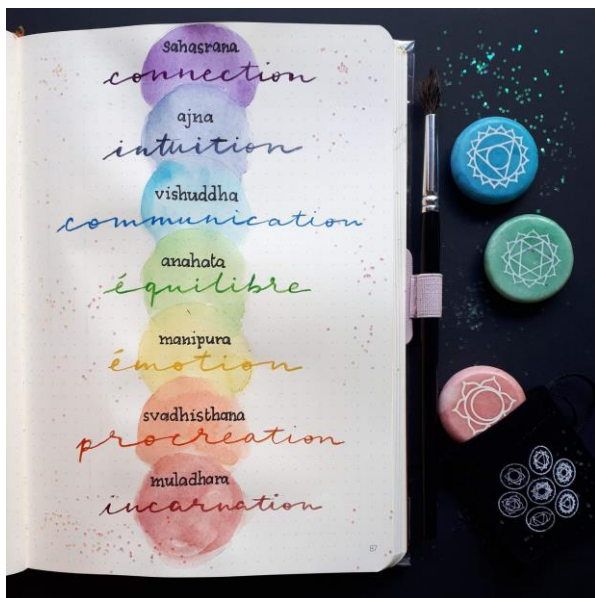 sahasrana
connection
ajna
intuition
vishuddha
communication
anahata
équilibre
manipura
émotion
svadhisthana
procreation
muladhara
incarnation
87